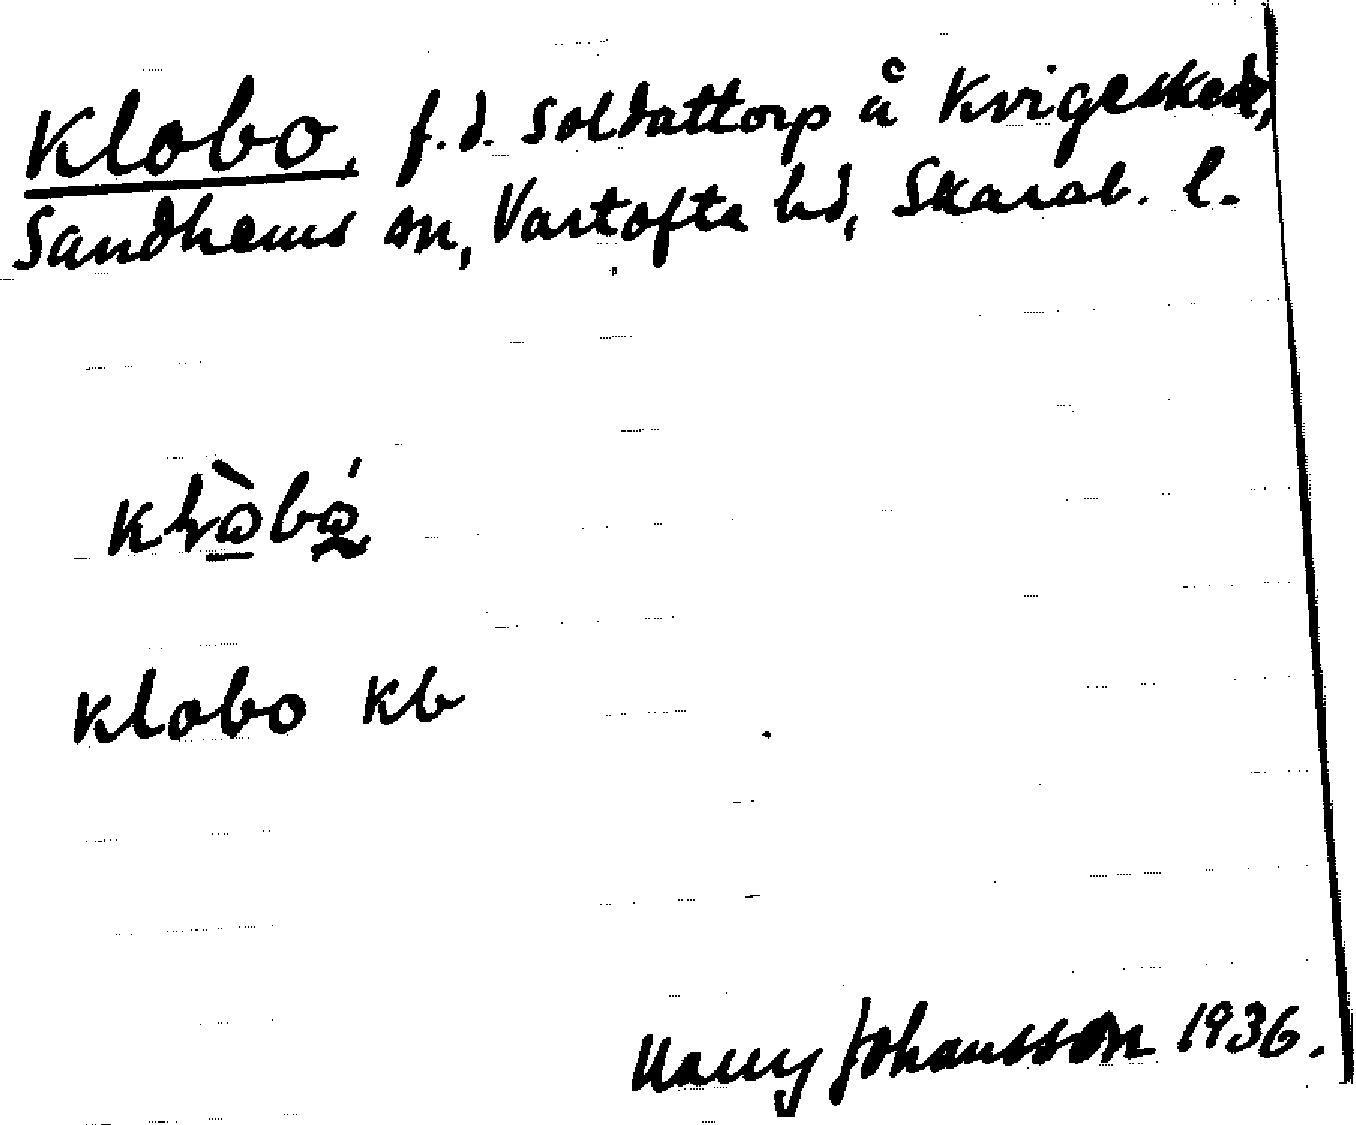 Klobo, f.d. Soldattorp å Kvigeskede,
Sandhems sn, Vartofta hd, Skarab. l.
Klobo kb
Harry Johansson 1936.